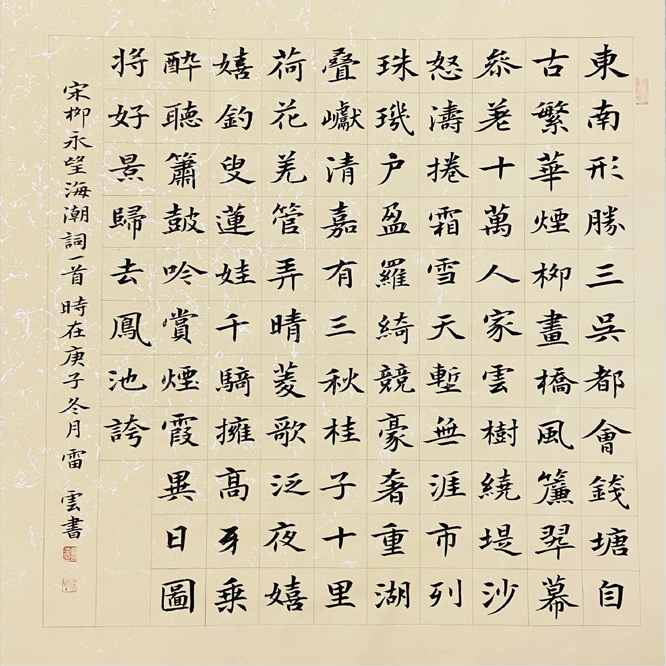 東南形勝三吳都會錢塘自
古繁華煙柳畫橋風簾翠幕
叅差十萬人家雲樹繞堤沙
怒濤捲霜雪天塹無涯市列
珠璣户盈羅綺競豪奢重湖
叠巘清嘉有三秋桂子十里
荷花羌管弄晴菱歌泛夜嬉
嬉釣叟蓮娃千騎擁高牙乘
醉聽簫鼓吟賞煙霞異日圖
將好景歸去鳳池誇
宋柳永望海潮詞一首 時在庚子冬月雷 雲書